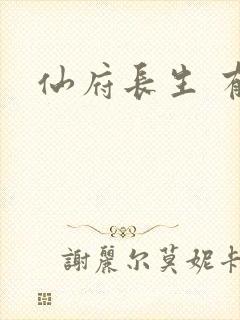 仙府長生
謝麗尔莫妮卡